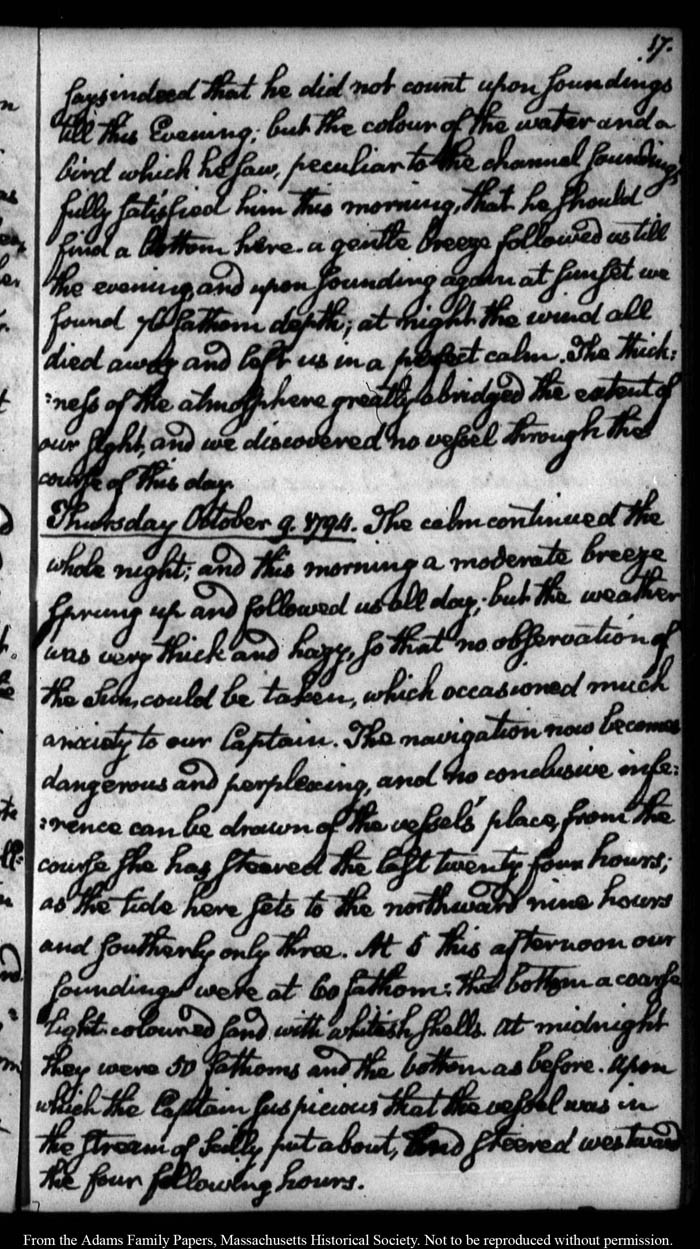 17.
says indeed that he did not count upon soundings
till this Evening; but the colour of the water and a
bird which he saw, peculiar to the channel soundings
fully satisfied him this morning, that he should
find a bottom here. a gentle breeze followed us till
the evening, and upon sounding again at sunset we
found 70 fathom depth; at night the wind all
died away and left us in a perfect calm. The thick:
:ness of the atmosphere greatly abridged the extent of
our sight, and we discovered no vessel through the
course of this day.
Thursday October 9. 1794. The calm continued the
whole night; and this morning a moderate breeze
sprung up and followed us all day; but the weather
was very thick and hazy, so that no observation of
the Sun, could be taken, which occasioned much
anxiety to our Captain. The navigation now becomes
dangerous and perplexing, and no conclusive infe:
:rence can be drawn of the vessel's place, from the
course she has steered the last twenty four hours;
as the tide here sets to the northward nine hours
and southerly only three. At 5 this afternoon our
soundings were at 60 fathom: the bottom a coarse
light-coloured sand with whitish shells. At midnight
they were 50 fathoms and the bottom as before. Upon
which the Captain suspicious that the vessel was in
the stream of Scilly put about, and steered westward
the four following hours.
From the Adams Family Papers, Massachusetts Historical Society. Not to be reproduced without permission.